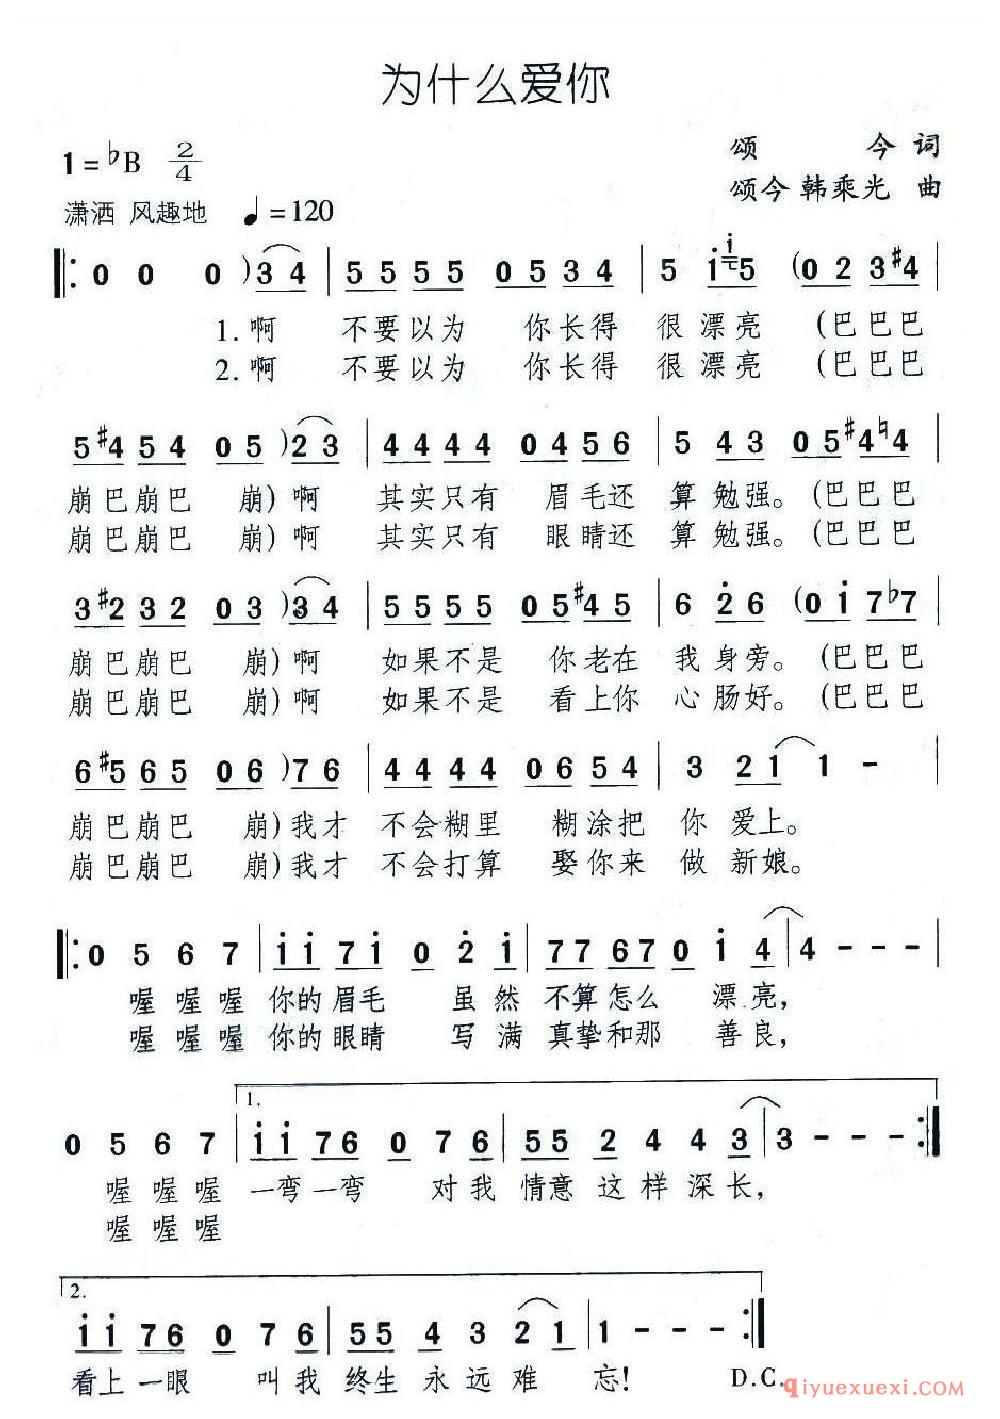 为什么爱你
1=♭B 2/4
颂 今 词
颂今 韩乘光 曲
潇洒 风趣地 ♩=120
‖: 0 0 0 )3 4 | 5 5 5 5 0 5 3 4 | 5 i i 5 (0 2 3 #4 |
1.啊 不要以为 你长得 很漂亮 (巴巴巴
2.啊 不要以为 你长得 很漂亮 (巴巴巴
5 #4 5 4 0 5 )2 3 | 4 4 4 4 0 4 5 6 | 5 4 3 0 5 #4 ♮4 |
崩巴崩巴 崩)啊 其实只有 眉毛还 算勉强。(巴巴巴
崩巴崩巴 崩)啊 其实只有 眼睛还 算勉强。(巴巴巴
3 #2 3 2 0 3 )3 4 | 5 5 5 5 0 5 #4 5 | 6 2̇ 6 (0 i 7 ♭7 |
崩巴崩巴 崩)啊 如果不是 你老在 我身旁。(巴巴巴
崩巴崩巴 崩)啊 如果不是 看上你 心肠好。(巴巴巴
6 #5 6 5 0 6 )7 6 | 4 4 4 4 0 6 5 4 | 3 2 1 1 - |
崩巴崩巴 崩)我才 不会糊里 糊涂把 你爱上。
崩巴崩巴 崩)我才 不会打算 娶你来 做新娘。
‖: 0 5 6 7 | i i 7 i 0 2̇ i | 7 7 6 7 0 i 4 | 4 - - - |
喔喔喔 你的眉毛 虽然 不算怎么 漂亮,
喔喔喔 你的眼睛 写满 真挚和那 善良,
1.
0 5 6 7 | i i 7 6 0 7 6 | 5 5 2 4 4 3 | 3 - - - :‖
喔喔喔 一弯一弯 对我 情意这样深长,
喔喔喔
2.
i i 7 6 0 7 6 | 5 5 4 3 2 1 | 1 - - - :‖
看上一眼 叫我 终生永远难 忘! D.C.
qiyuexuexi.com